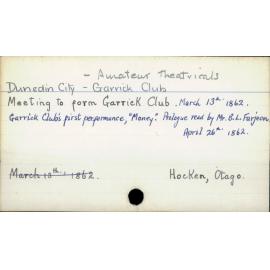 - Amateur Theatricals
Dunedin City - Garrick Club
Meeting to form Garrick Club. March 13th. 1862.
Garrick Club's first performance, "Money". Prologue read by Mr. B.L. Farjeon
April 26th. 1862.
March 13th. 1862.
Hocken, Otago.